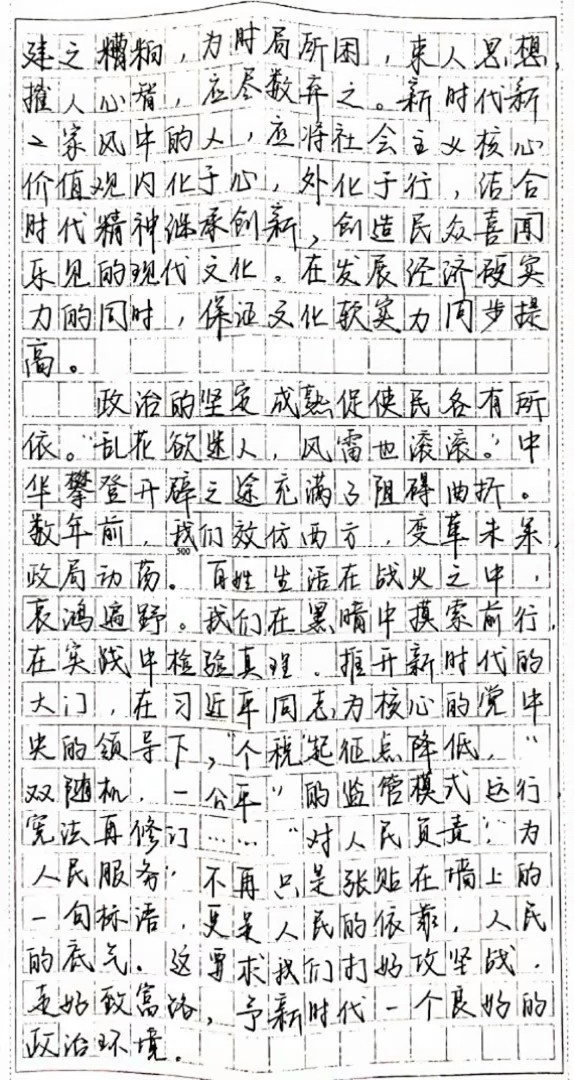 建之糟粕，为时局所困，束人思想，
摧人心智，应尽数弃之。新时代新
之家风中的人，应将社会主义核心
价值观内化于心，外化于行，结合
时代精神继承创新，创造民众喜闻
乐见的现代文化。在发展经济硬实
力的同时，保证文化软实力同步提
高。
政治的坚定成熟促使民各有所
依。“乱花欲迷人，风雷也滚滚。”中
华攀登开辟之途充满了阻碍曲折。
数年前，我们效仿西方，变革未果，
500
政局动荡。百姓生活在战火之中，
哀鸿遍野。我们在黑暗中摸索前行，
在实战中检验真理。推开新时代的
大门，在习近平同志为核心的党中
央的领导下，“个税”起征点降低，“
双随机，一公平”的监管模式运行，
宪法再修订……“对人民负责”“为
人民服务”不再只是张贴在墙上的
一句标语，更是人民的依靠，人民
的底气。这要求我们打好攻坚战，
走好致富路，予新时代一个良好的
政治环境。